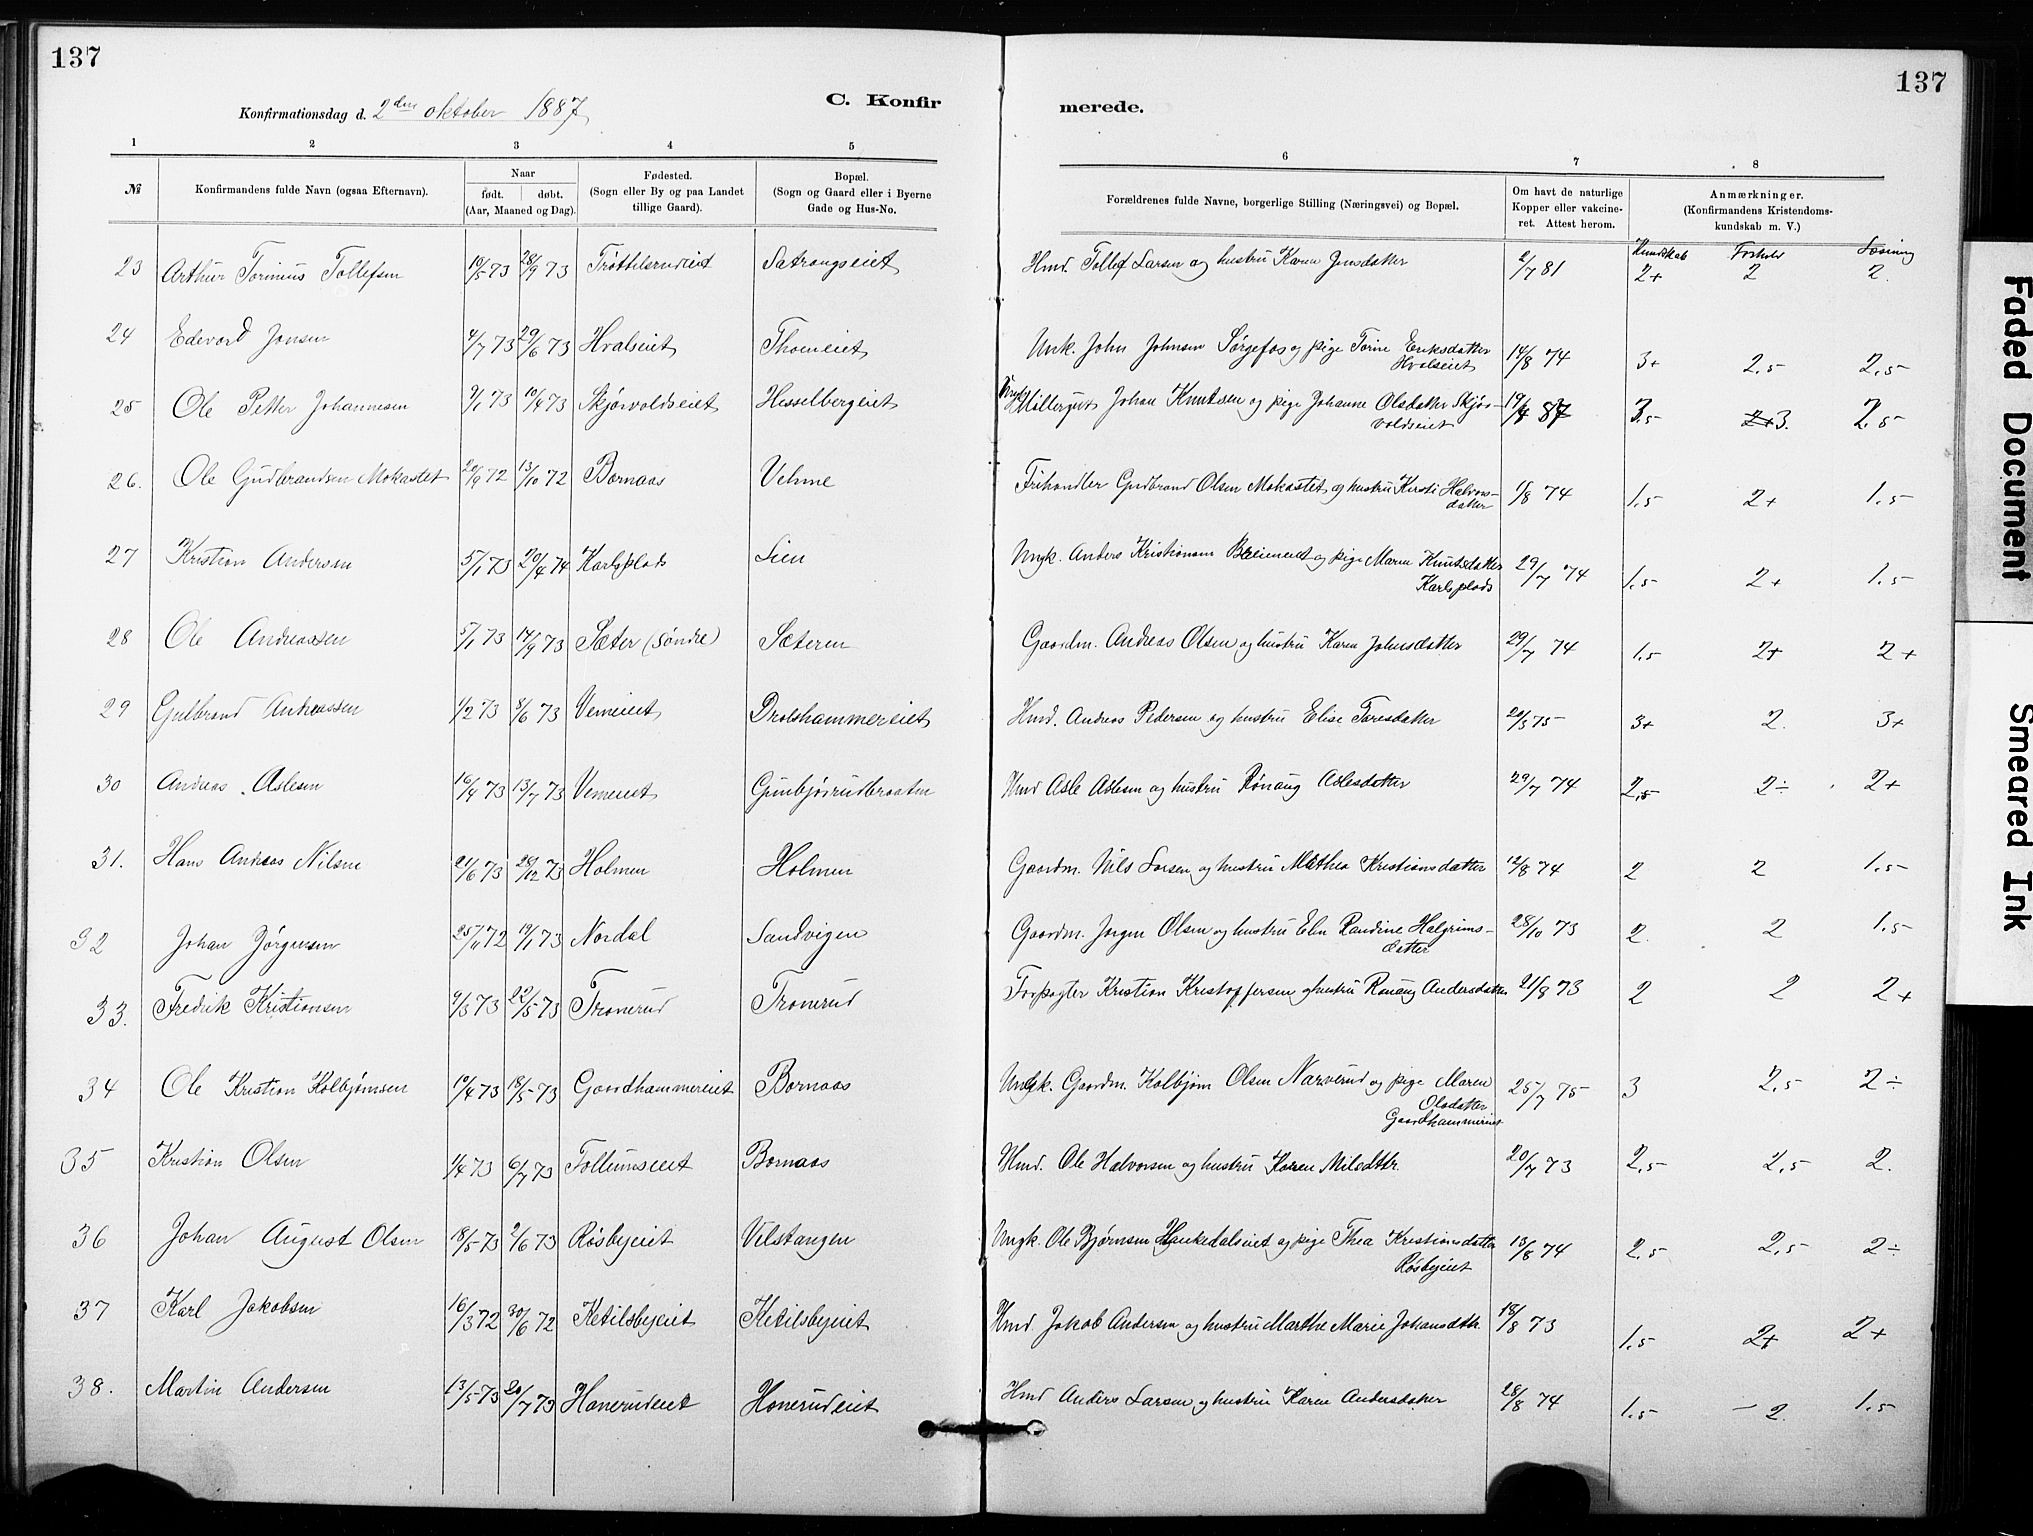 137
137
Konfirmationsdag d. 2den oktober 1887
C. Konfir
merede.
1 2 3 4 5 6 7 8
№ Konfirmandens fulde Navn (ogsaa Efternavn). Naar født. døbt. (Aar, Maaned og Dag). Fødested. (Sogn eller By og paa Landet tillige Gaard). Bopæl. (Sogn og Gaard eller i Byerne Gade og Hus-No. Forældrenes fulde Navne, borgerlige Stilling (Næringsvei) og Bopæl. Om havt de naturlige Kopper eller vakcineret. Attest herom. Anmærkninger. (Konfirmandens Kristendomskundskab m. V.)
Kundskab Forhold Læsning
23 Arthur Torinius Tollefsen 19/5 73 28/9 73 Trøttelsrudeiet Satrangseiet Hmd. Tollef Larsen og hustru Karen Jensdatter 2/7 81 2+ 2 2.
24 Edevard Jonsen 4/7 73 29/6 73 Hvalseiet Thoneiet Unk. John Johnsen Sørgefos og pige Torine Eriksdatter
Hvalseiet 14/8 74 3+ 2,5 2,5
25 Ole Petter Johannesen 9/1 73 10/4 73 Skjørvoldseiet Hesselbergeiet Ungk. Møllergut Johan Knutsen og pige Johanne Olsdatter Skjør-
voldseiet 19/4 87 3,5 2+ 3. 2,5
26. Ole Gudbrandsen Mokastet 22/9 72 13/10 72 Bornaas Velme Frihandler Gudbrand Olsen Mokastet og hustru Kirsti Halvors-
datter 15/8 74 1,5 2+ 1,5
27 Kristian Andersen 5/1 73 20/4 74 Karlsplads Lien Ungk. Anders Kristiansen Breieneiet og pige Maren Knutsdatter
Karlsplads 29/7 74 1,5 2+ 1,5
28 Ole Andreassen 5/1 73 14/9 73 Sæter (søndre) Sæteren Gaardm. Andreas Olsen og hustru Karen Johnsdatter 29/7 74 1,5 2+ 2+
29 Gulbrand Andreassen 1/2 73 8/6 73 Vemeiet Drolshammereiet Hmd. Andreas Pedersen og hustru Elise Toresdatter 20/3 75 3+ 2. 3+
30 Andreas Aslesen 16/4 73 13/7 73 Vemeiet Gunbjørrudbraaten Hmd Asle Aslesen og hustru Rønaug Aslesdatter 29/7 74 2,5 2÷ 2+
31. Hans Andreas Nilsen 21/6 73 28/12 73 Holmen Holmen Gaardm. Nils Larsen og hustru Mathea Kristiansdatter 12/8 74 2 2 1,5
32 Johan Jørgensen 25/11 72 19/1 73 Nordal Sandvigen Gaardm. Jørgen Olsen og hustru Elen Randine Halgrims-
datter 28/10 73 2. 2 1,5
33. Fredrik Kristiansen 9/3 73 22/5 73 Tronerud Tronerud Forpagter Kristian Kristoffersen og hustru Rønaug Andersdatter 21/8 73 2 2 2+
34 Ole Kristian Kolbjørnsen 10/4 73 18/5 73 Gaardhammereiet Bornaas Ungk. Gaardm. Kolbjørn Olsen Narverud og pige Maren
Olsdatter
Gaardhammereiet 25/7 75 3 2,5 2÷
35 Kristian Olsen 1/4 73 6/7 73 Tollumseiet Bornaas Hmd. Ole Halvorsen og hustru Karen Nilsdtr. 20/7 73 2,5 2,5 2.
36 Johan August Olsen 18/5 73 2/6 73 Røsbyeiet Velstangen Ungk. Ole Bjørnsen Haukedalseiet og pige Thea Kristiansdatter
Røsbyeiet 13/8 74 2,5 2,5 2÷
37 Karl Jakobsen 16/3 72 30/6 72 Ketilsbyeiet Ketilsbyeiet Hmd. Jakob Andersen og hustru Marthe Marie Johansdtr. 18/8 73 1,5 2+ 2+
38. Martin Andersen 13/5 73 20/7 73 Honerudeiet Honerudeiet Hmd Anders Larsen og hustru Karen Andersdatter 28/8 74 1,5 – 2. 1,5
Faded Document
Smeared Ink